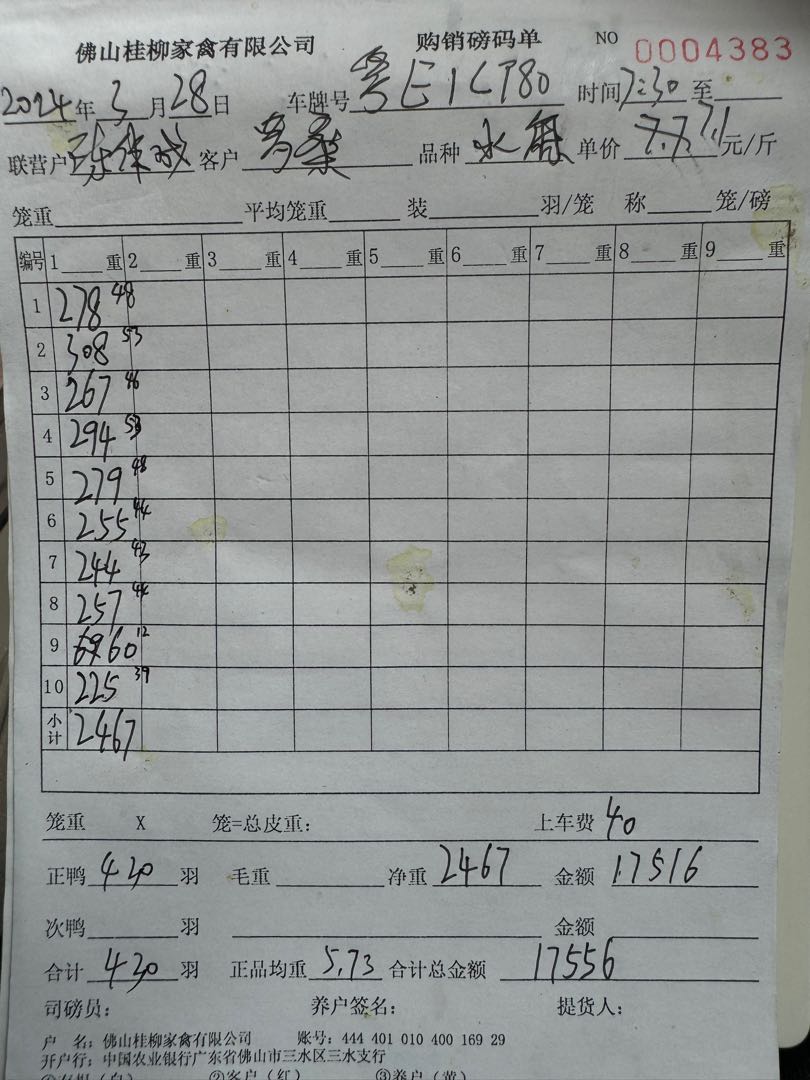 佛山桂柳家禽有限公司 购销磅码单 NO 0004383
2024年3月28日 车牌号粤E1CT80 时间7:30至
联营户 客户 品种水 单价7.1元/斤
笼重 平均笼重 装 羽/笼 称 笼/磅
编号 1 重 2 重 3 重 4 重 5 重 6 重 7 重 8 重 9 重
1 278 48
2 308 53
3 267 46
4 294 53
5 279 48
6 255 44
7 244 43
8 257 44
9 60 12
10 225 39
小计 2467
笼重 X 笼=总皮重: 上车费 40
正鸭 430 羽 毛重 净重 2467 金额 17516
次鸭 羽 金额
合计 430 羽 正品均重 5.73 合计总金额 17556
司磅员: 养户签名: 提货人:
户 名: 佛山桂柳家禽有限公司 账号: 444 401 010 400 169 29
开户行: 中国农业银行广东省佛山市三水区三水支行
①存根(白) ②客户(红) ③养户(黄)